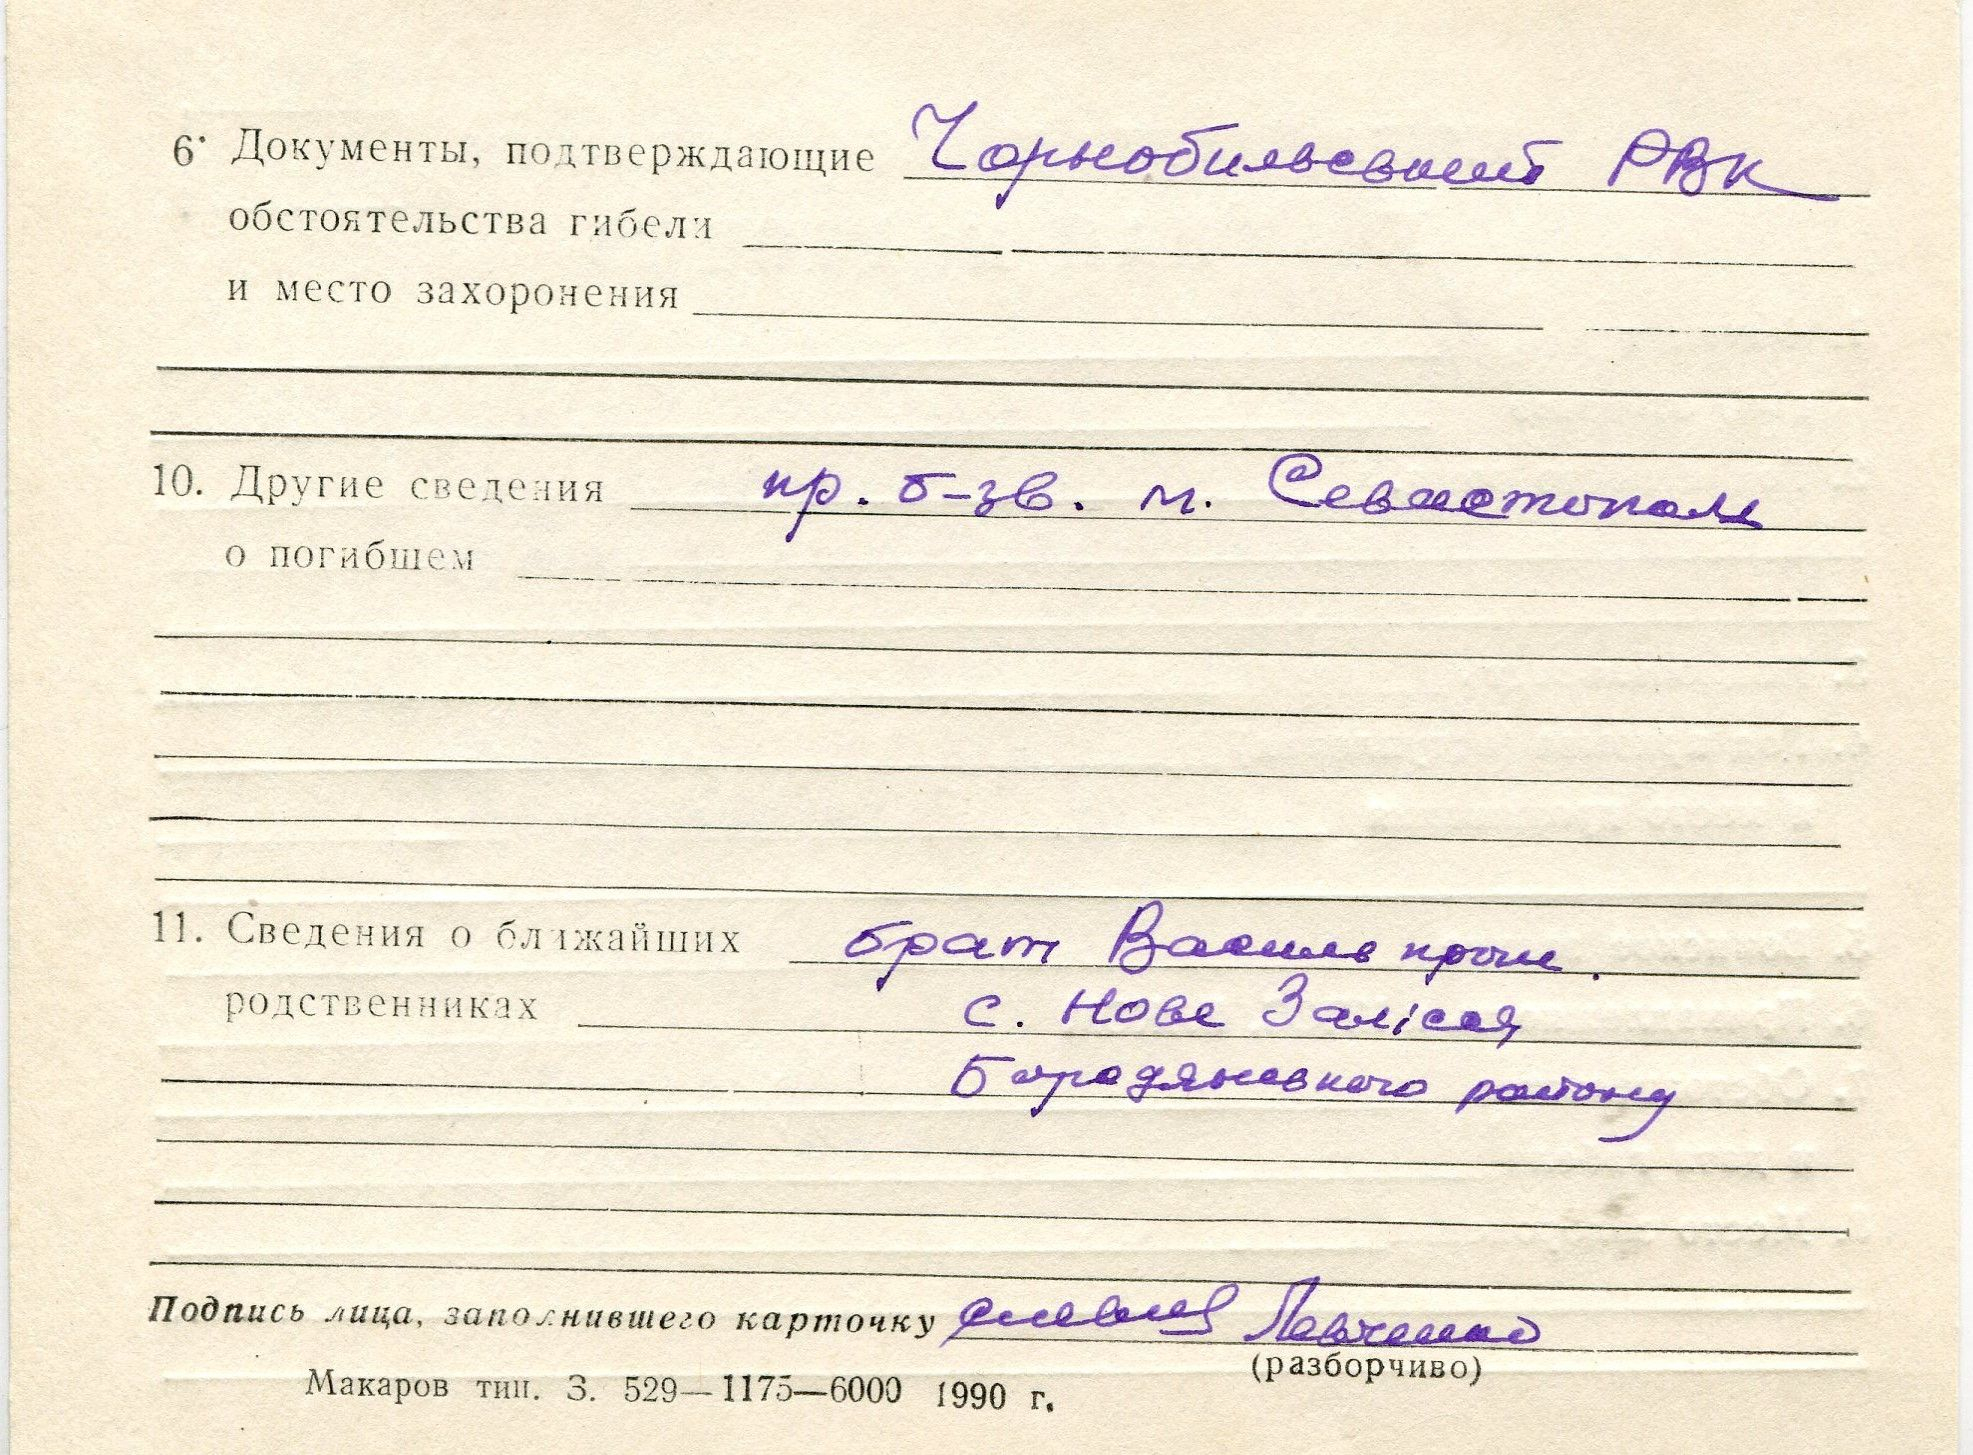 6. Документы, подтверждающие Чорнобильський РВК
обстоятельства гибели
и место захоронения
10. Другие сведения пр. б-зв. м. Севастополь
о погибшем
11. Сведения о ближайших брат Василь прож.
родственниках с. Нове Залісся
Бородянського району
Подпись лица, заполнившего карточку Левченко
(разборчиво)
Макаров тип. З. 529—1175—6000 1990 г.